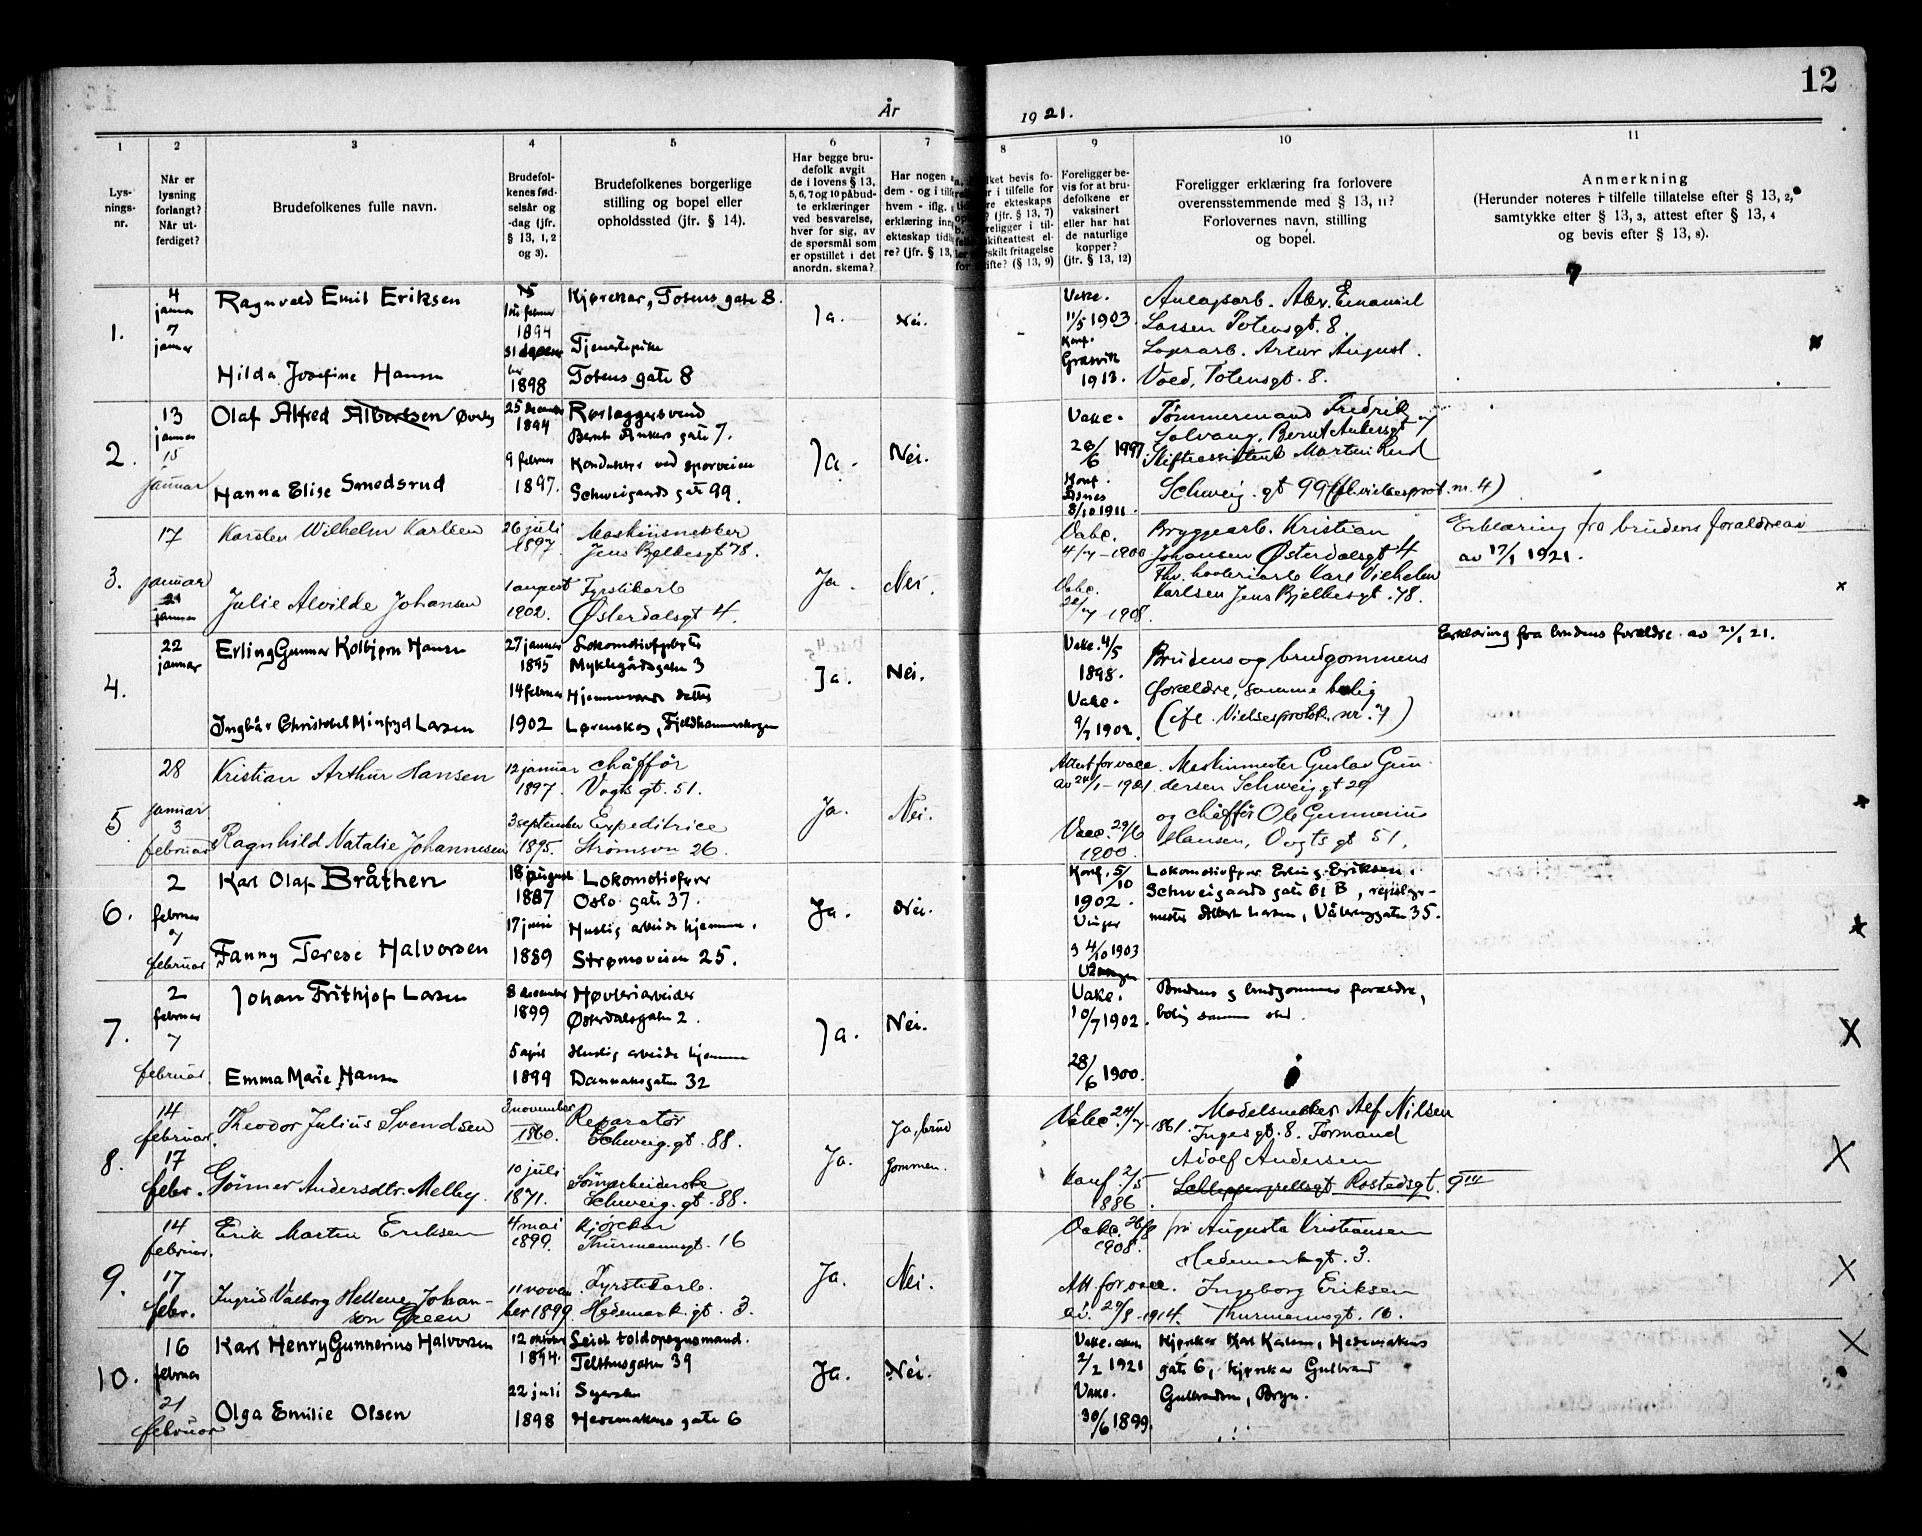 12
År 1921.
1 2 3 4 5 6 7 8 9 10 11
Lys-
nings-
nr.
Når er
lysning
forlangt?
Når ut-
ferdiget?
Brudefolkenes fulle navn.
Brudefol-
kenes fød-
selsår og
-dag (jfr.
§ 13, 1, 2
og 3).
Brudefolkenes borgerlige
stilling og bopel eller
opholdssted (jfr. § 14).
Har begge bru-
defolk avgit
de i lovens § 13,
5, 6, 7 og 10 påbud-
te erklæringer
ved besvarelse,
hver for sig, av
de spørsmål som
er opstillet i det
anordn. skema?
Har nogen
dem - og i tilf
hvem - iflg.
erklæring inn
ekteskap tidl
re? (jfr. § 13,
ket bevis fo-
r i tilfelle for
re ekteskaps
? (jfr. § 13, 7)
religger i til-
skifteattest el-
rskilt fritagelse
ifte? (§ 13, 9)
Foreligger be-
vis for at bru-
defolkene er
vaksinert
eller har hat
de naturlige
kopper?
(jfr. § 13, 12)
Foreligger erklæring fra forlovere
overensstemmende med § 13, 11?
Forlovernes navn, stilling
og bopel.
Anmerkning
(Herunder noteres i tilfelle tillatelse efter § 13, 2,
samtykke efter § 13, 3, attest efter § 13, 4
og bevis efter § 13, 8).
1.
4
januar
7
januar
Ragnvald Emil Eriksen
Hilda Josefine Hansen
1894
1898
Kjørekar, Totens gate 8.
Tjenestepike
Totens gate 8
Ja.
Nei.
Vakc.
11/5 1903.
Konf.
Græsvik
1913.
Alex. Emanuel
Larsen Totensgt. 8.
Artur August
Totensgt. 8.
2.
13
januar
15
januar
Olaf Alfred Albertsen Øverby
Hanna Elise Smedsrud
25 desember
1894
9 februar
1897.
Rørlæggersvend
Bernt Ankers gate 7.
Konduktør ved sporveien
Schweigaards gate 99.
Ja.
Nei.
Vakc.
Konf.
Asnes
8/10 1911
Tømmermand Fredrik
Solvang, Bernt Ankersgt 7
Martin Rud
Schweig. gt 99 nr. 4)
3.
17
januar
21
januar
Karsten Wilhelm Karlsen
Julie Alvilde Johansen
26 juli
1897.
1 august
1902.
Maskinsnekker
Jens Bjelkesgt 78.
Fyrstikarb.
Østerdalsgt 4.
Ja.
Nei.
Vakc.
4/7 - 1900
Vakc.
- 1908.
Bryggearb. Kristian
Johansen Østerdalsgt 4
Karl Vilhelm
Karlsen Jens Bjelkesgt. 78.
Erklæring fra brudens forældre av
av 17/1 1921.
4.
22
januar
Erling Gunnar Kolbjørn Hansen
Larsen
27 januar
1895
14 februar
1902
Lokomotivfyrbøter
Myklegårdsgaten 3
Hjemmeværende datter
Lørenskog, Fjeldhammerskogen
Ja.
Nei.
Vakc. 4/5
1898.
Vakc.
9/7 1902.
Brudens og brudgommens
forældre, samme bolig
(ifl. Vielsesprotok. nr. 7)
Erklæring fra brudens forældre av 21/1 21.
5
28
januar
3
februar
Kristian Arthur Hansen
Ragnhild Natalie Johannesen
12 januar
1897.
3 september
1895.
Chåffør
Vogts gt. 51.
Expeditrice
Strømsvn 26.
Ja.
Nei.
Attest for vacc.
av 24/1 - 1921
Vacc. 29/6
1900.
Maskinmester Gustav Gun-
dersen Schweig gt 29
og chåffør Ole Gunnerius
Hansen, Vogts gt 51.
6.
2
februar
7
februar
Karl Olaf Bråthen
Fanny Terese Halvorsen
18 august
1887
17 juni
1889
Lokomotivfyrer
Oslo gate 37.
Huslig arbeide hjemme.
Strømsveien 25.
Ja.
Nei.
Konf. 5/10
1902.
Vinger
4/10 1903
Lokomotivfyrer Erling Eriksen,
Schweigaards gate 61 B,
Albert Larsen, Vålerenggaten 35.
7.
2
februar
7
februar.
Johan Frithjof Larsen
Emma Marie Hansen
8 desember
1899
5 april
1899
Høvleriarbeider
Østerdalsgaten 2.
Huslig arbeide hjemme
Danmarksgaten 32
Ja.
Nei.
Vakc.
10/7 1902.
28/6 1900.
Brudens og brudgommens forældre,
bolig samme sted.
8.
14
februar.
17
febr.
Theodor Julius Svendsen
Gønner Andersdtr. Melby.
3 november
1860.
10 juli
1871.
Reparatør
Schweig. gt. 88.
Sømarbeiderske
Schweig. gt. 88.
Ja.
Ja, brud
gommen.
Vakc. 24/7 - 1861.
Konf. 2/5
1886.
Modelsnekker Alf Nilsen
Inges gt. 8. Formand
Adolf Andersen
Schleppegrellsgt Rostedsgt. 9 III
9.
14
februar.
17
febr.
Erik Martin Eriksen
Ingrid Valborg Hellene Johan-
son Green
4 mai
1899.
11 novem
ber 1899.
Kjørekar
Thurmannsgt. 16
Fyrstikarb.
Hedemark. gt. 3.
Ja.
Nei.
Vakc. 26/8
1908.
Att. for vacc.
av. 29/8 - 1914.
frk Augusta Kristiansen
Hedemarkgt. 3.
Ingeborg Eriksen
Thurmannsgt. 16.
10.
16
februar
21
februar
Karl Henry Gunnerius Halvorsen
Olga Emilie Olsen
12 oktober
1894.
22 juli
1898
Leiet toldopsynsmand.
Telthusgaten 39
Syerske
Hedemarkens gate 6
Ja.
Nei.
Vakc.
2/2 1921
Vakc.
30/6 1899.
Kjørekar Karl Karlsen, Hedemarkens
gate 6, kjørekar Gulbrand
Gulbrandsen, Bryn.